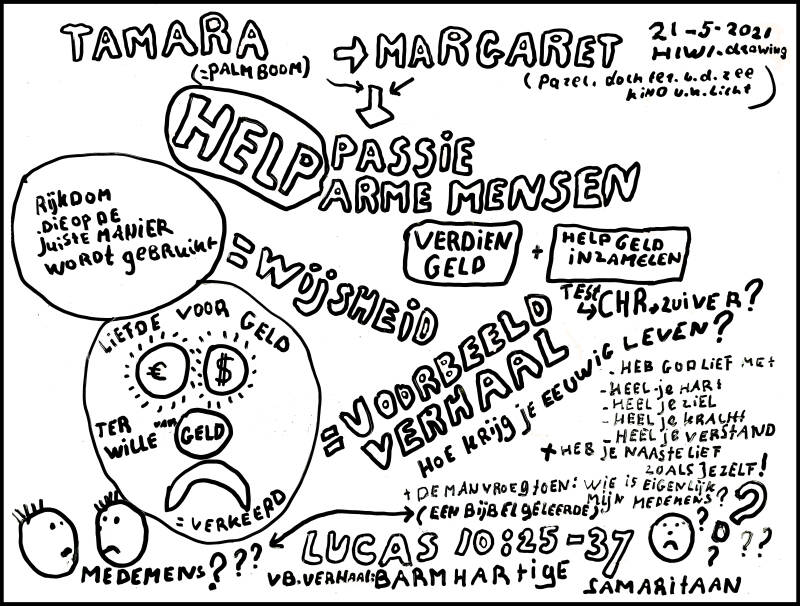 TAMARA
(=PALMBOOM)
→ MARGARET
21-5-2021
HIWI.drawing
(parel. dochter.v.d.zee
kind v.h.licht)
HELP PASSIE
ARME MENSEN
RijKDOM
.DIE OP DE
juiste MANIER
WORDT gebruikt
= Wijsheid
VERDIEN
GELD
+
HELP GELD
INZAMELEN
TEST
CHR → ZUIVER?
Liefde voor Geld
€ $
TER
WILLE van GELD
= VERKEERD
= VOORBEELD
VERHAAL
Hoe krijg je eeuwig leven?
- HEB GOD LIEF MET
- HEEL je HART
- HEEL je ZIEL
- HEEL je KRACHT
- HEEL je VERSTAND
+ HEB je NAASTE LIEF
ZOALS jEZELF!
+ DE MAN VROEG TOEN: WIE IS EIGENLIJK
MIJN MEDEMENS?
(EEN BijBELGELEERDE)
LUCAS 10:25-37
MEDEMENS? ???
VB.VERHAAL: BARMHARTiGE
SAMARITAAN